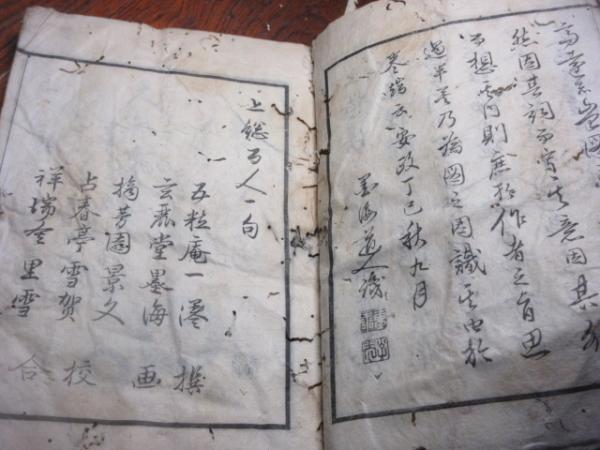 然因其詞而写其意因其
不想其内則庶於作者之旨思
過半矣乃論図之因識其由於
巻端云安政丁巳秋九月
墨海道人
上総百人一句
五粒庵一澤 撰
玄麗堂墨海 画
摘芳園景文
占春亭雪賀 校
祥瑞舎里雪 合